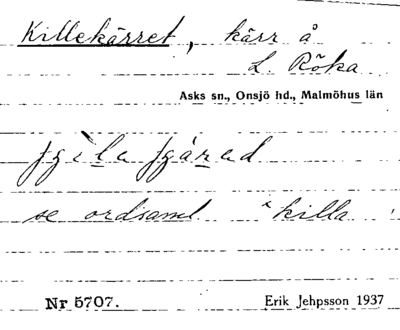 Killekärret, kärr å
L. Röka
Asks sn., Onsjö hd., Malmöhus län
se ordsaml. killa
Nr 5707. Erik Jehpsson 1937